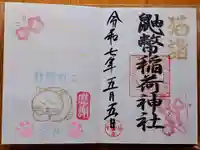 猫詣
鼬幣稲荷神社
令和七年五月五日